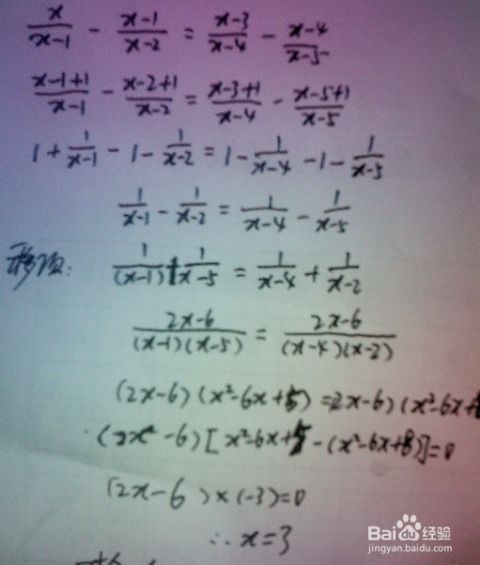 x/(x-1) - (x-1)/(x-2) = (x-3)/(x-4) - (x-4)/(x-5)
(x-1+1)/(x-1) - (x-2+1)/(x-2) = (x-3+1)/(x-4) - (x-5+1)/(x-5)
1 + 1/(x-1) - 1 - 1/(x-2) = 1 - 1/(x-4) - 1 - 1/(x-5)
1/(x-1) - 1/(x-2) = 1/(x-4) - 1/(x-5)
移项: 1/(x-1) + 1/(x-5) = 1/(x-4) + 1/(x-2)
(2x-6)/((x-1)(x-5)) = (2x-6)/((x-4)(x-2))
(2x-6)(x²-6x+5) = 2x-6)(x²-6x+
(2x-6)[x²-6x+5-(x²-6x+8)]=0
(2x-6)×(-3)=0
∴x=3
Baidu经验
jingyan.baidu.com